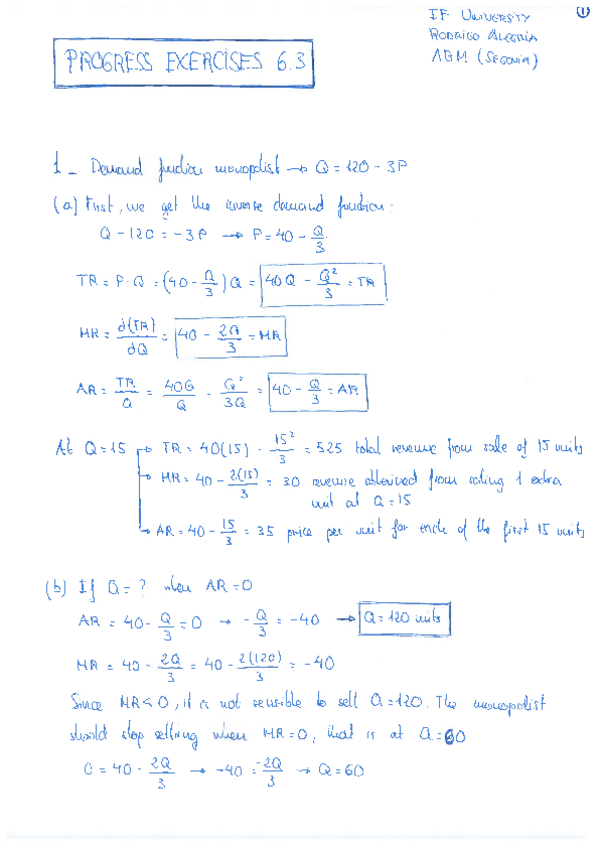 IE UNIVERSITY
1
RODRIGO ALEGRÍA
ABM (SEGOVIA)
PROGRESS EXERCISES 6.3
1 - Demand function monopolist → Q = 120 - 3P
(a) First, we get the inverse demand function:
Q - 120 = -3P → P = 40 - Q/3
TR = P·Q = (40 - Q/3) Q = 40Q - Q²/3 = TR
MR = ∂(TR)/∂Q = 40 - 2Q/3 = MR
AR = TR/Q = 40Q/Q - Q²/3Q = 40 - Q/3 = AR
At Q=15 → TR = 40(15) - 15²/3 = 525 total revenue from sale of 15 units
→ MR = 40 - 2(15)/3 = 30 revenue derived from selling 1 extra
unit at Q=15
→ AR = 40 - 15/3 = 35 price per unit for each of the first 15 units
(b) If Q = ? when AR = 0
AR = 40 - Q/3 = 0 → -Q/3 = -40 → Q = 120 units
MR = 40 - 2Q/3 = 40 - 2(120)/3 = -40
Since MR < 0, it is not sensible to sell Q=120. The monopolist
should stop selling when MR=0, that is at Q=60
0 = 40 - 2Q/3 → -40 = -2Q/3 → Q = 60